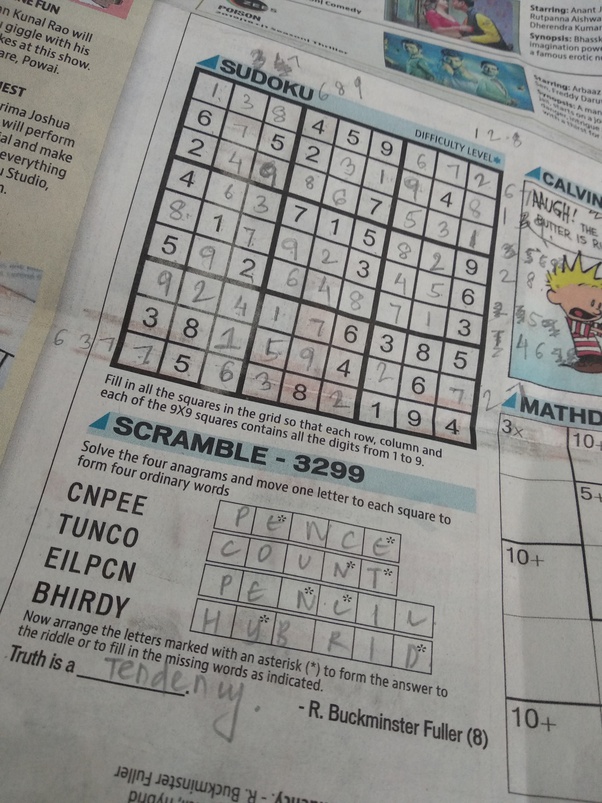 NE FUN
n Kunal Rao will
giggle with his
kes at this show.
are, Powai.
EST
rima Joshua
will perform
ial and make
everything
u Studio,
n.
POISON
Comedy
Starring: Anant
Rutpanna Aishwa
Dherendra Kumar
Synopsis: Bhassk
Imagination powe
a famous erotic n
Starring: Arbaaz
SUDOKU 689
DIFFICULTY LEVEL
12.8
1 3 8 4 5 9 6 7 2
6 7 5 2 3 1 9 4 8
2 4 9 8 6 7 5 3 1
4 6 3 7 1 5 8 2 9
8 1 7 9 2 3 4 5 6
5 9 2 6 4 8 7 1 3
9 2 4 1 7 6 3 8 5
3 8 1 5 9 4 2 6 7
7 5 6 3 8 2 1 9 4
6 3 7
Fill in all the squares in the grid so that each row, column and
each of the 9X9 squares contains all the digits from 1 to 9.
SCRAMBLE - 3299
Solve the four anagrams and move one letter to each square to
form four ordinary words
CNPEE
P E* N C E*
TUNCO
C O U N* T*
EILPCN
P E N* C* I L
BHIRDY
H Y* B R I D*
Now arrange the letters marked with an asterisk (*) to form the answer to
the riddle or to fill in the missing words as indicated.
Truth is a Tendency.
- R. Buckminster Fuller (8)
CALVIN
AAUGH!
THE
BUTTER IS R
MATHD
3x
10+
5+
10+
10+
ncy. - R. Buckminster Fuller